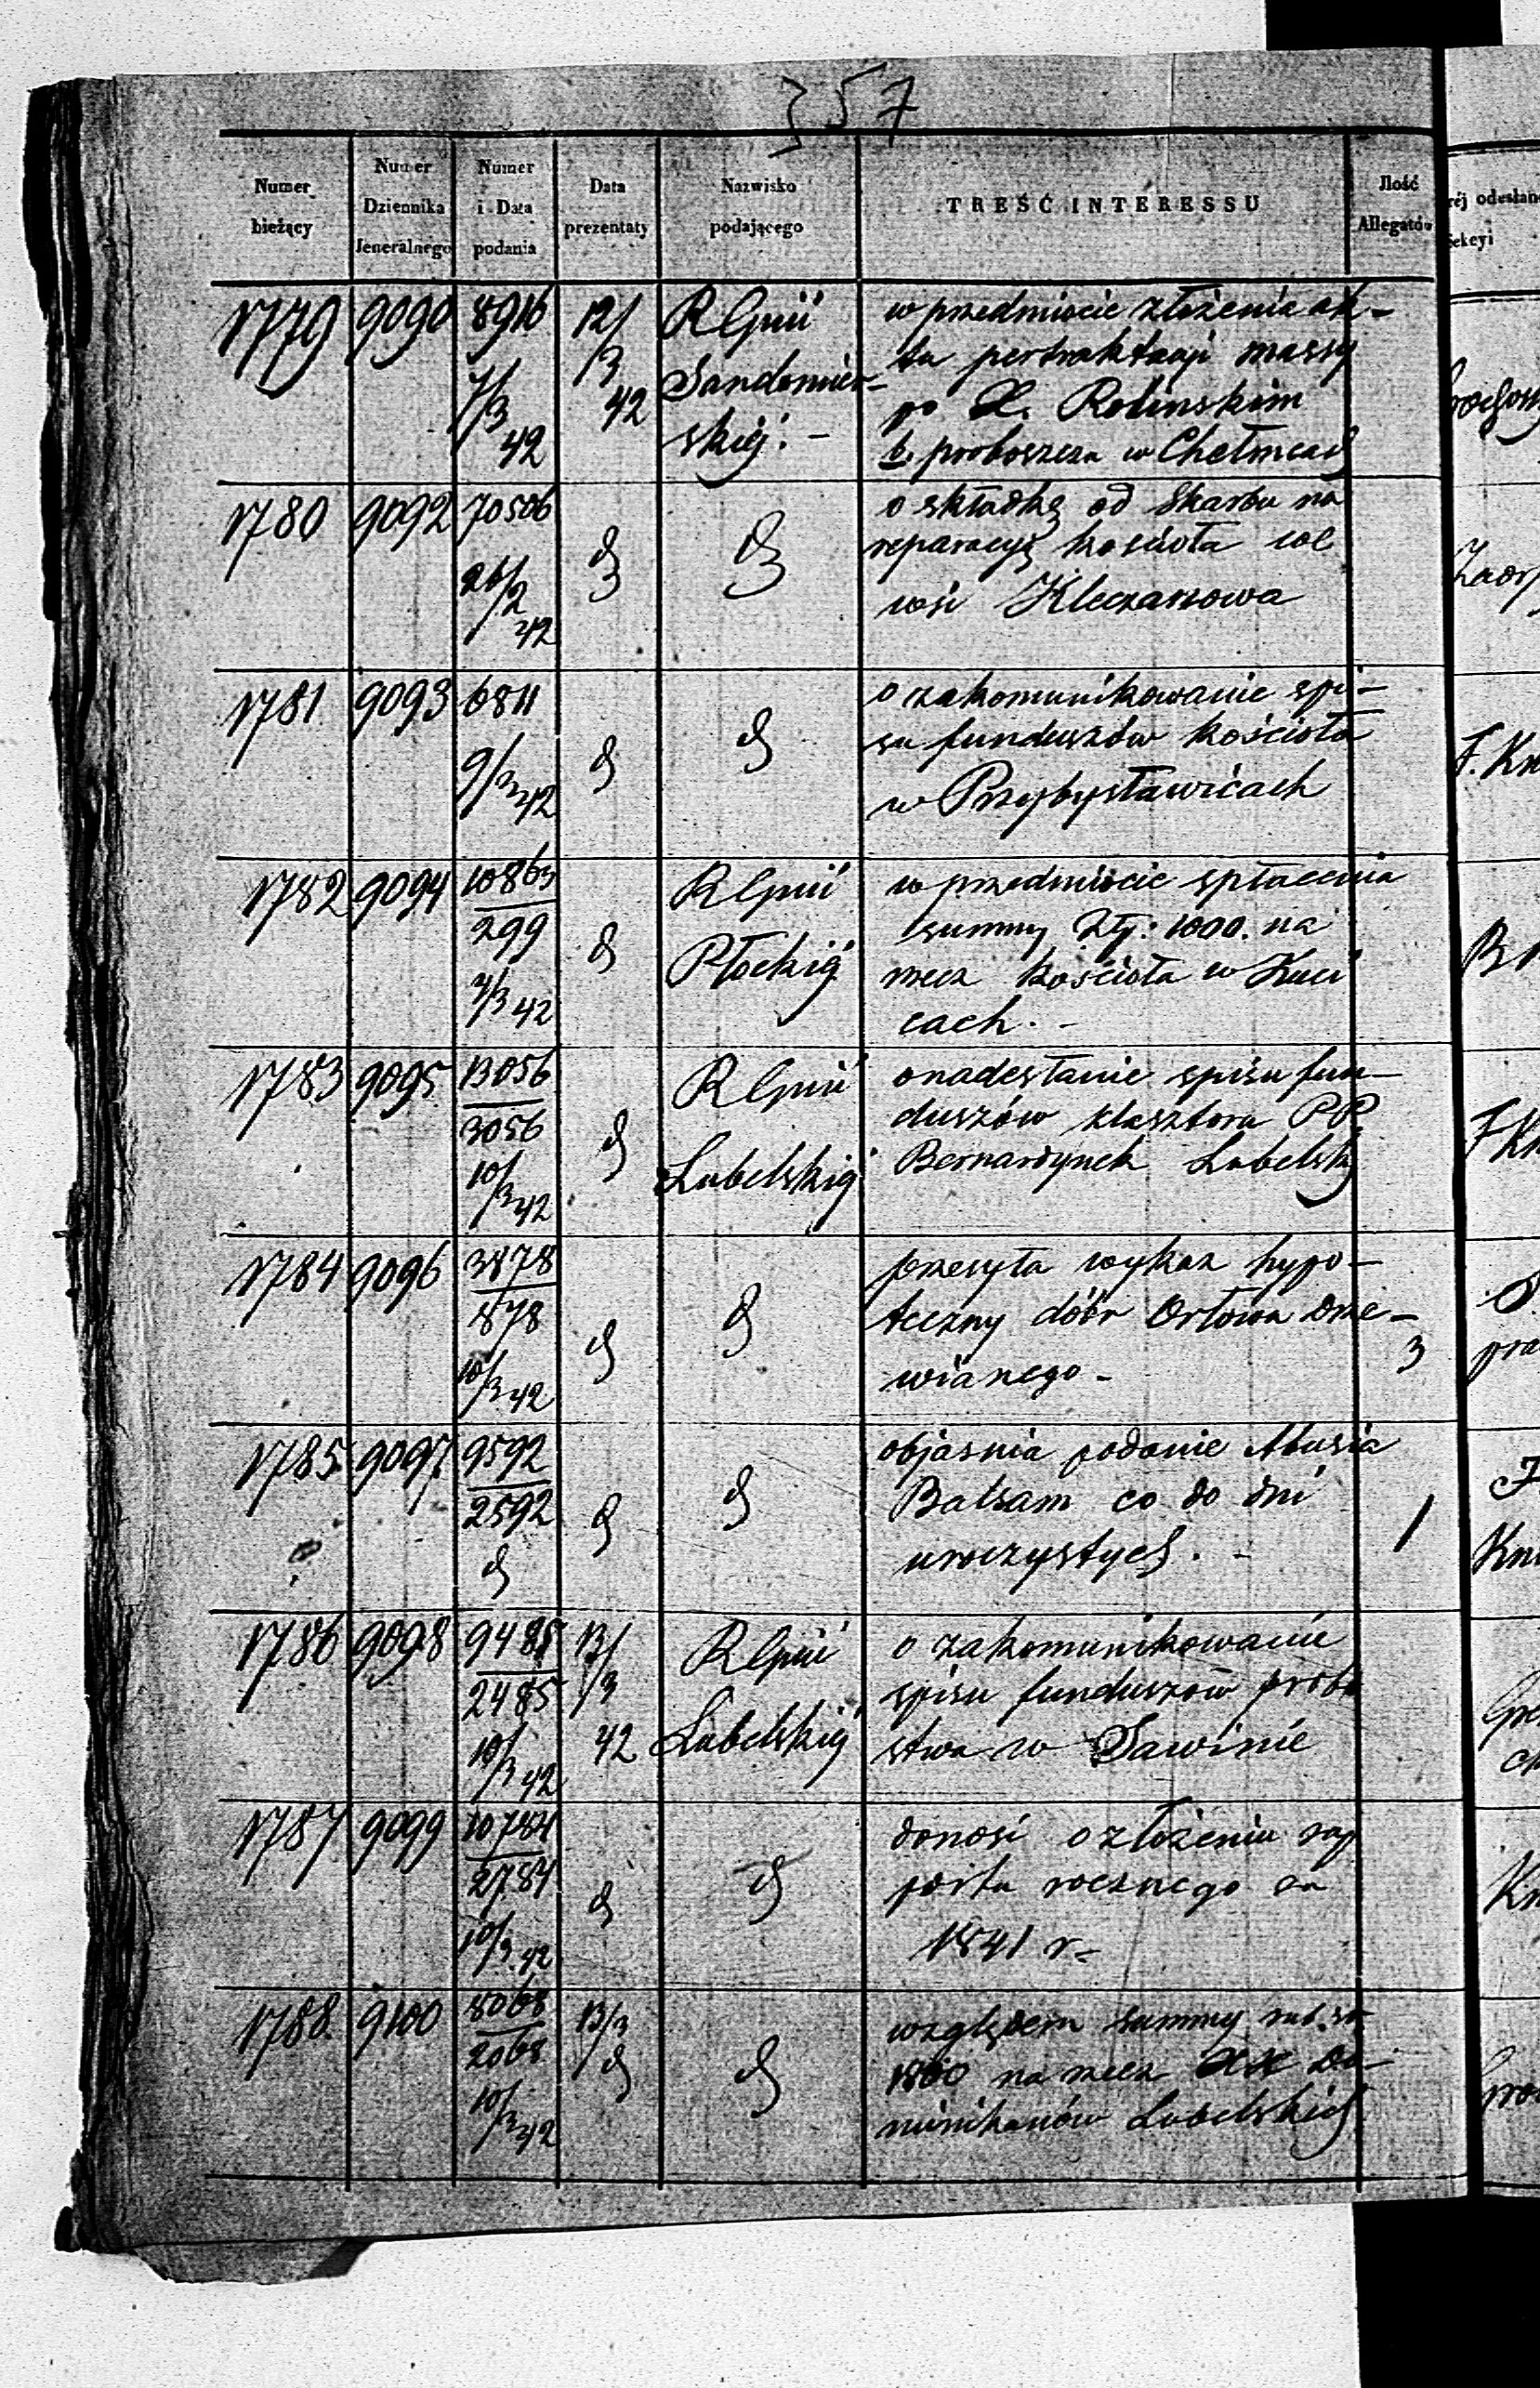 357
Numer bieżący
Numer Dziennika Jeneralnego
Numer i Data podania
Data prezentaty
Nazwisko podającego
TREŚĆ INTERESSU
Ilość Allegatów
1779 9090 8916 7/3 42 12/3 42 R Gnii Sandomier-
skiéj. -
w przedmiocie złożenia ak-
ta pertraktacyi massy
po X. Rolinskim
b. proboszczu w Chełmcach
1780 9092 70506 26/2 42
o składkę od Skarbu na
reparacyę kościoła we
wsi Kleczanowa
1781 9093 6811 9/3 42
o zakomunikowanie spi-
su funduszów kościoła
w Przybysławicach
1782 9094 10863/299 7/3 42 R Gnii
Płockiéj
w przedmiocie spłacenia
summy Złp: 1000. na
rzecz kościoła w Kuci
cach. -
1783 9095 13056/3056 10/3 42 R Gnii
Lubelskiéj
o nadesłanie spisu fun-
duszów klasztoru PP.
Bernardynek Lubelsk
1784 9096 3878/878 10/3 42
przesyła wykaz hypo-
teczny dóbr Orłowa Drze-
wianego - 3
1785 9097 9592/2592
objasnia podanie Abusia
Balsam co do dni
uroczystych. - 1
1786 9098 9485/2485 10/3 42 13/3 42 R Gnii
Lubelskiéj
o zakomunikowanie
spisu funduszów probo
stwa w Sawinie
1787 9099 10784/2784 10/3 42
donosi o złożeniu rap
portu rocznego za
1841 r-
1788 9100 8068/2068 10/3 42 13/3
względem summy rub. sr.
1800 na rzecz XX Do-
minikanów Lubelskich